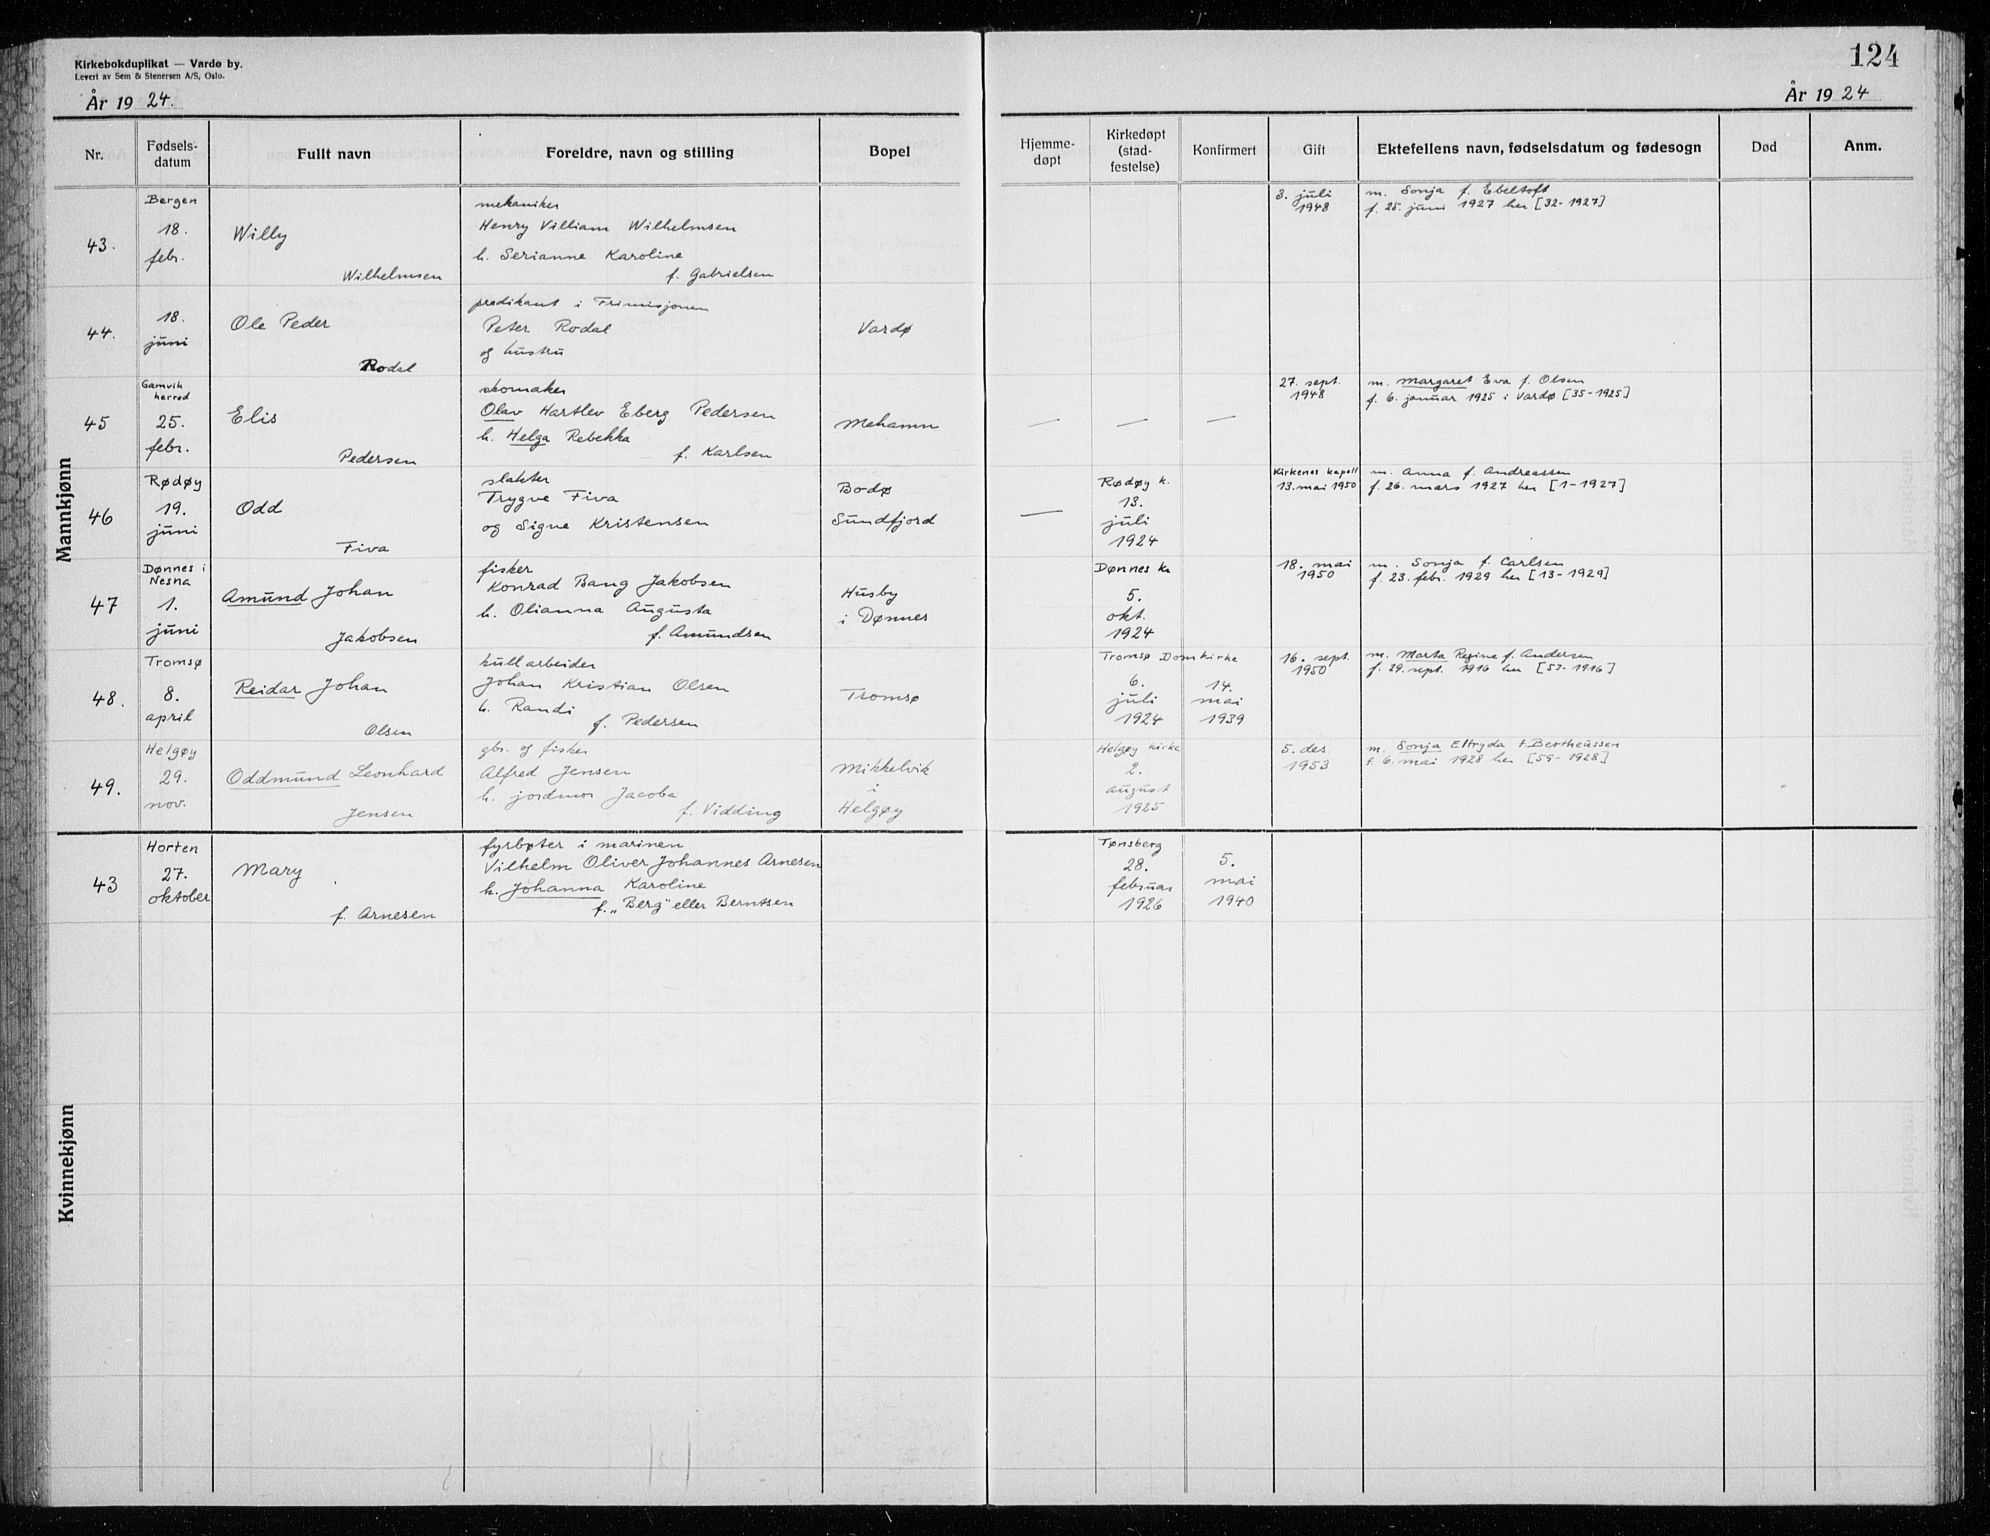 Kirkebokduplikat — Vardø by.
Levert av Sem & Stenersen A/S, Oslo.
År 19 24.
124
År 19 24
Nr.
Fødsels-
datum
Fullt navn
Foreldre, navn og stilling
Bopel
Hjemme-
døpt
Kirkedøpt
(stad-
festelse)
Konfirmert
Gift
Ektefellens navn, fødselsdatum og fødesogn
Død
Anm.
Mannkjønn
43.
Bergen
18.
febr.
Willy
Wilhelmsen
mekaniker
Henry Villiam Wilhelmsen
h. Serianne Karoline
f. Gabrielsen
3. juli
1948
m. Sonja f. Ebeltoft
f. 25. juni 1927 her [32-1927]
44.
18.
juni
Ole Peder
Rodal
predikant i Frimisjonen
Peter Rodal
og hustru
Vardø
45
Gamvik
herred
25.
febr.
Elis
Pedersen
skomaker
Olav Hartlev Eberg Pedersen
h. Helga Rebekka
f. Karlsen
Mehamn
—
—
—
27. sept.
1948
m. Margaret Eva f. Olsen
f. 6. januar 1925 i Vardø [35-1925]
46
Rødøy
19.
juni
Odd
Fiva
slakter
Trygve Fiva
og Signe Kristensen
Bodø
Sundfjord
—
Rødøy k.
13.
juli
1924
Kirkenes kapell
13. mai 1950
m. Anna f. Andreassen
f. 26. mars 1927 her [1-1927]
47
Dønnes i
Nesna
1.
juni
Amund Johan
Jakobsen
fisker
Konrad Bang Jakobsen
h. Olianna Augusta
f. Amundsen
Husby
i Dønnes
Dønnes k.
5.
okt.
1924
18. mai
1950
m. Sonja f. Carlsen
f. 23. febr. 1929 her [13-1929]
48.
Tromsø
8.
april
Reidar Johan
Olsen
kullarbeider
Johan Kristian Olsen
h. Randi
f. Pedersen
Tromsø
Tromsø Domkirke
6.
juli
1924
14.
mai
1939
16. sept.
1950
m. Marta Regine f. Andersen
f. 29. sept. 1916 her [53-1916]
49.
Helgøy
29.
nov.
Oddmund Leonhard
Jensen
gbr. og fisker
Alfred Jensen
h. jordmor Jacoba
f. Vidding
Mikkelvik
i
Helgøy
Helgøy kirke
2.
august
1925
5. des.
1953
m. Sonja Elfryda f. Bertheussen
f. 6. mai 1928 her [59-1928]
Kvinnekjønn
43
Horten
27.
oktober
Mary
f. Arnesen
fyrbøter i marinen
Vilhelm Oliver Johannes Arnesen
h. Johanna Karoline
f. „Berg" eller Berntsen
Tønsberg
28.
februar
1926
5.
mai
1940